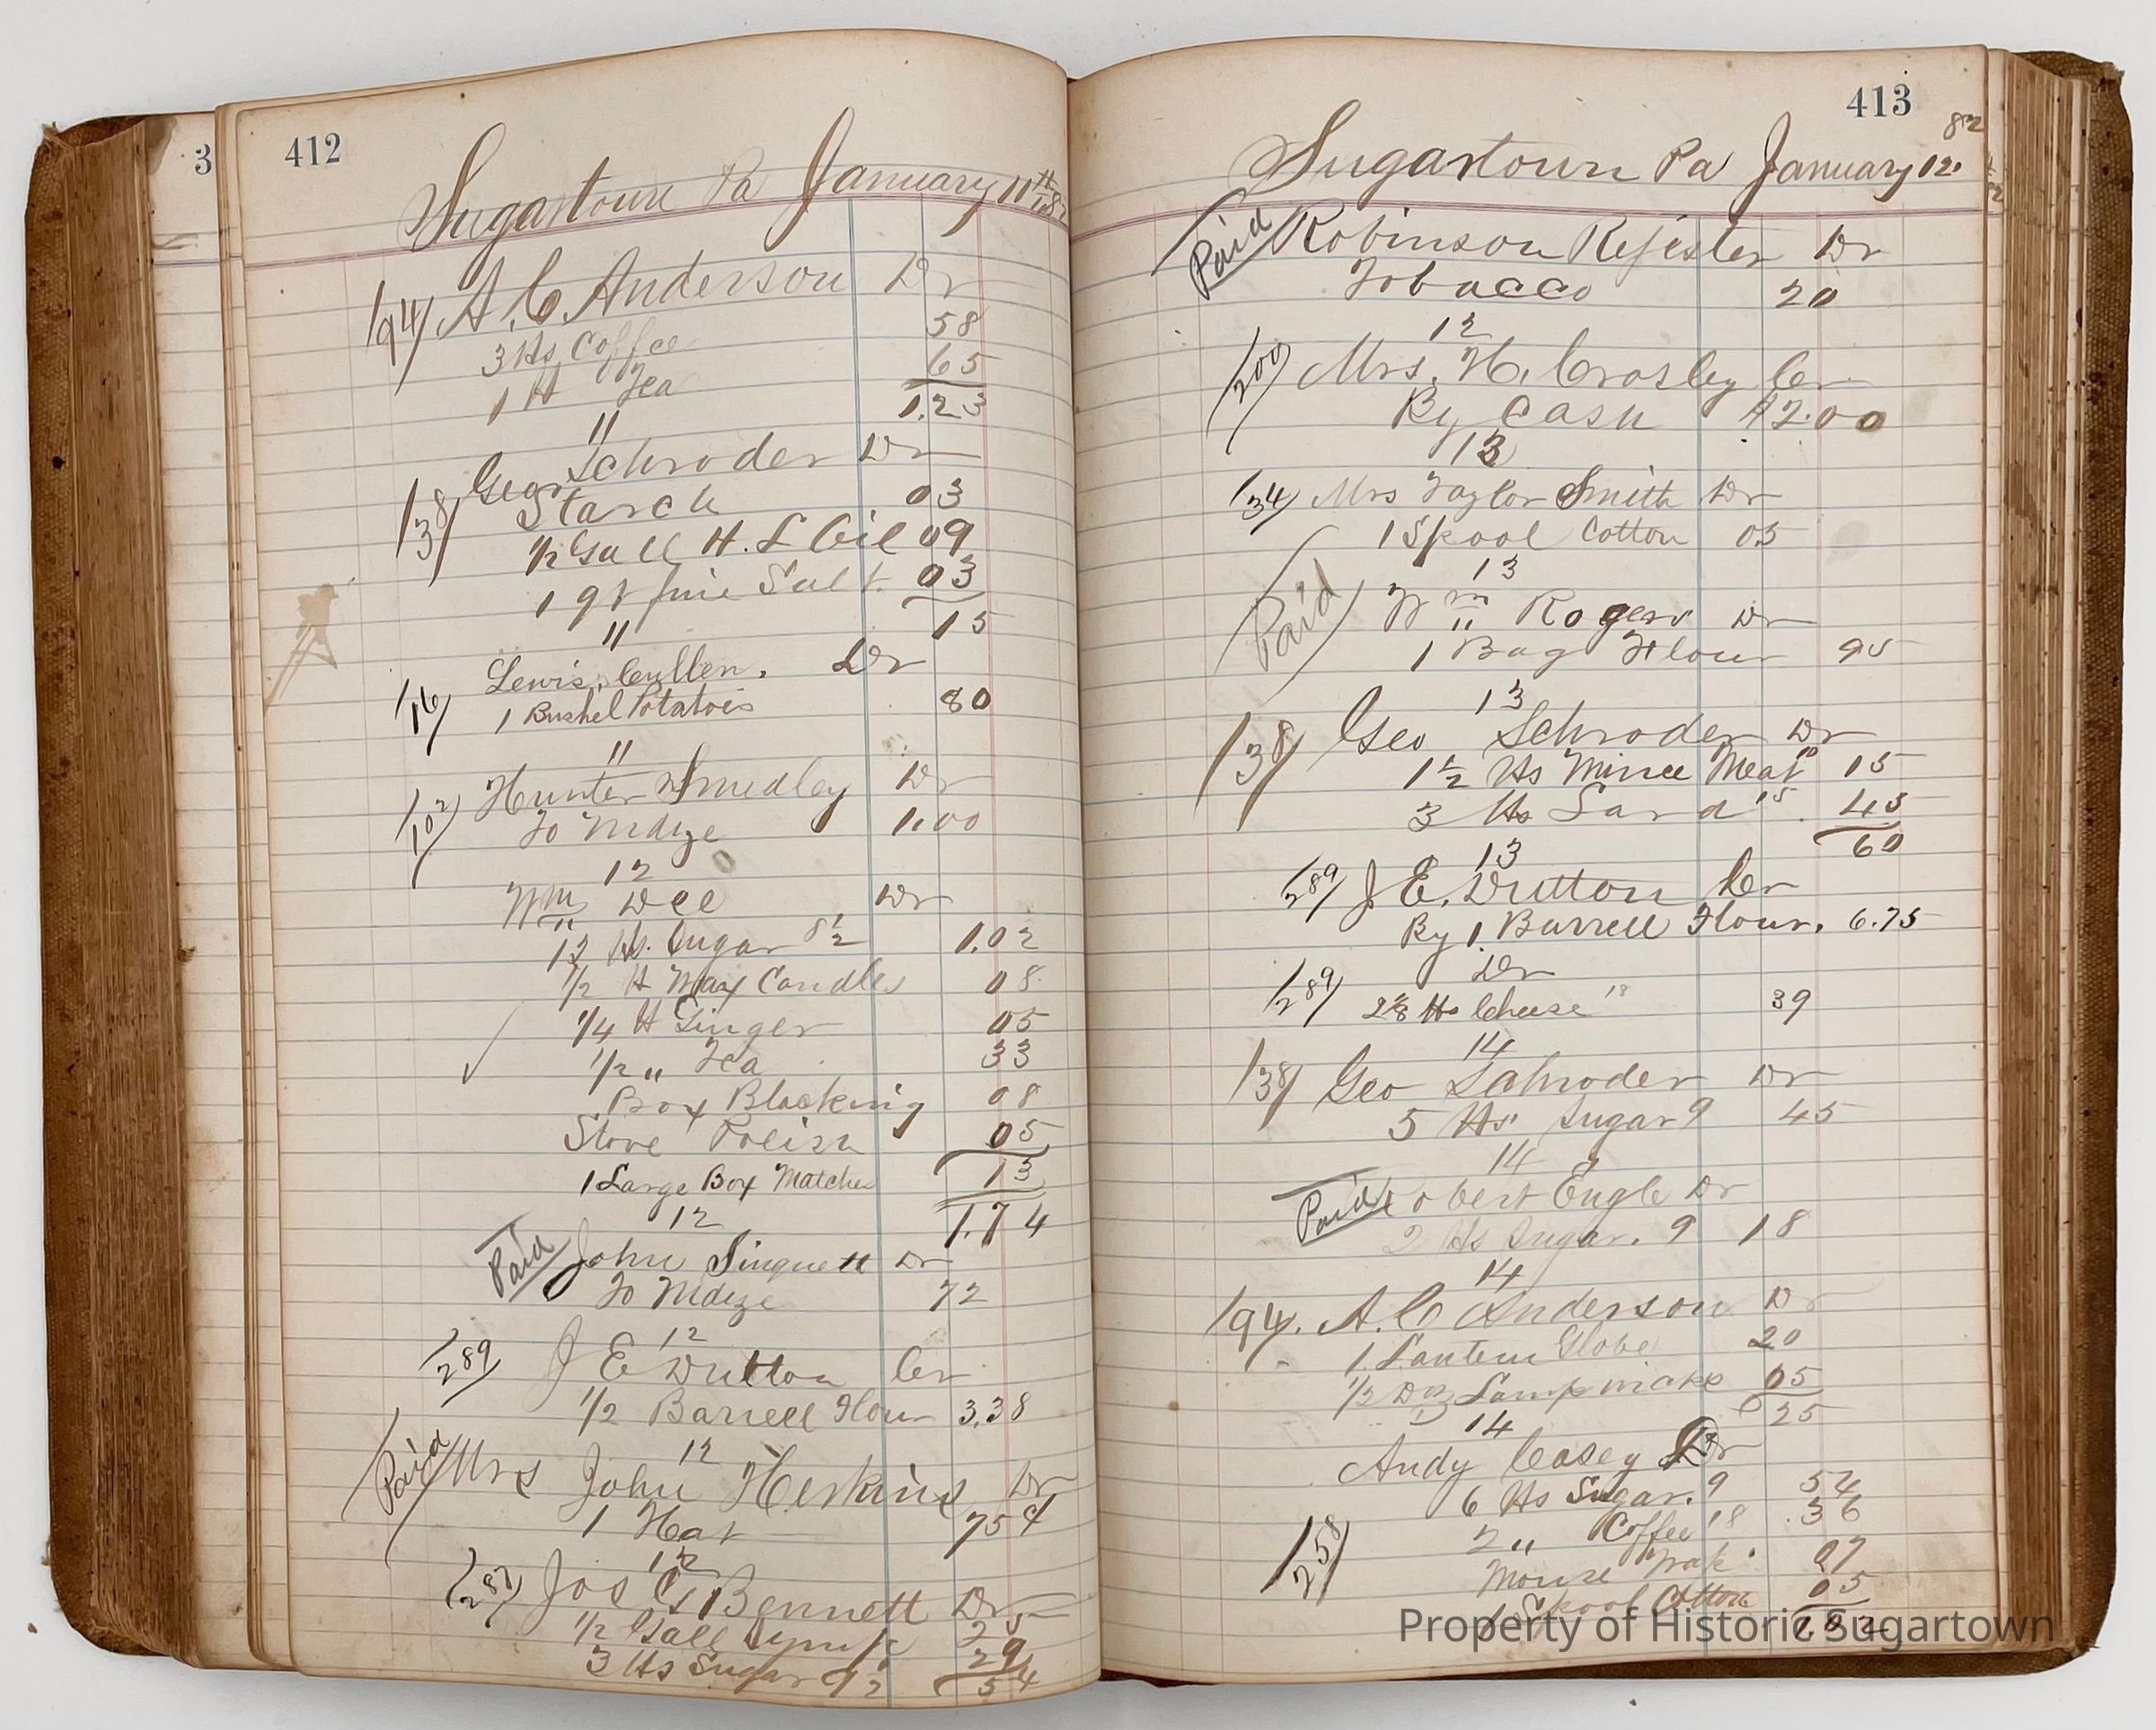 3
412
Sugartown Pa January 11th
194/ A. C Anderson Dr
3 lbs Coffee 58
1 lb Tea 65
1.23
"
138/ Geo Schroder Dr
Starch 03
1/2 Gall H. L Oil 09
1 qt fine Salt. 03
15
"
16/ Lewis Cullen. Dr
1 Bushel Potatois 80
"
102/ Hunter Smedley Dr
To Mdze 1.00
12
Wm Dee Dr
12 lbs. Sugar 8 1/2 1.02
1/2 lb Wax Candles 08
1/4 lb Ginger 05
1/2 " Tea 33
Box Blacking 08
Stove Polish 05
1 Large Box Matches 13
1.74
12
Paid John Singuett Dr
To Mdze 72
12
289/ J E Dutton Cr
1/2 Barrell Flour 3.38
12
Paid Mrs John Herkins Dr
1 Hat 75 ¢
12
287/ Jos G Bennett Dr
1/2 Gall Syrup 25
3 lbs Sugar 9 1/2 29
54
413
Sugartown Pa January 12.
Paid Robinson Regester Dr
Tobacco 20
12
200/ Mrs. H. Crosley Cr
By Cash $2.00
13
134/ Mrs Taylor Smith Dr
1 Spool Cotton 05
13
Paid Wm Rogers Dr
1 Bag Flour 95
13
138/ Geo Schroder Dr
1 1/2 lbs Mince Meat 10 15
3 lbs Lard 15. 45
60
13
289/ J E. Dutton Cr
By 1. Barrell Flour. 6.75
289/ Dr
lbs Cheese 18 39
14
138/ Geo Schroder Dr
5 lbs Sugar 9 45
14
Paid Robert Engle Dr
2 lbs Sugar. 9 18
14
194. A. C Anderson Dr
1 Lantern Globe 20
1/2 Doz Lamp wicks 05
25
14
Andy Casey Dr
6 lbs Sugar. 9 54
258/ 2 " Coffee 18 .36
Mouse Trap. 07
1 Spool Cotton 05
1.02
Property of Historic Sugartown